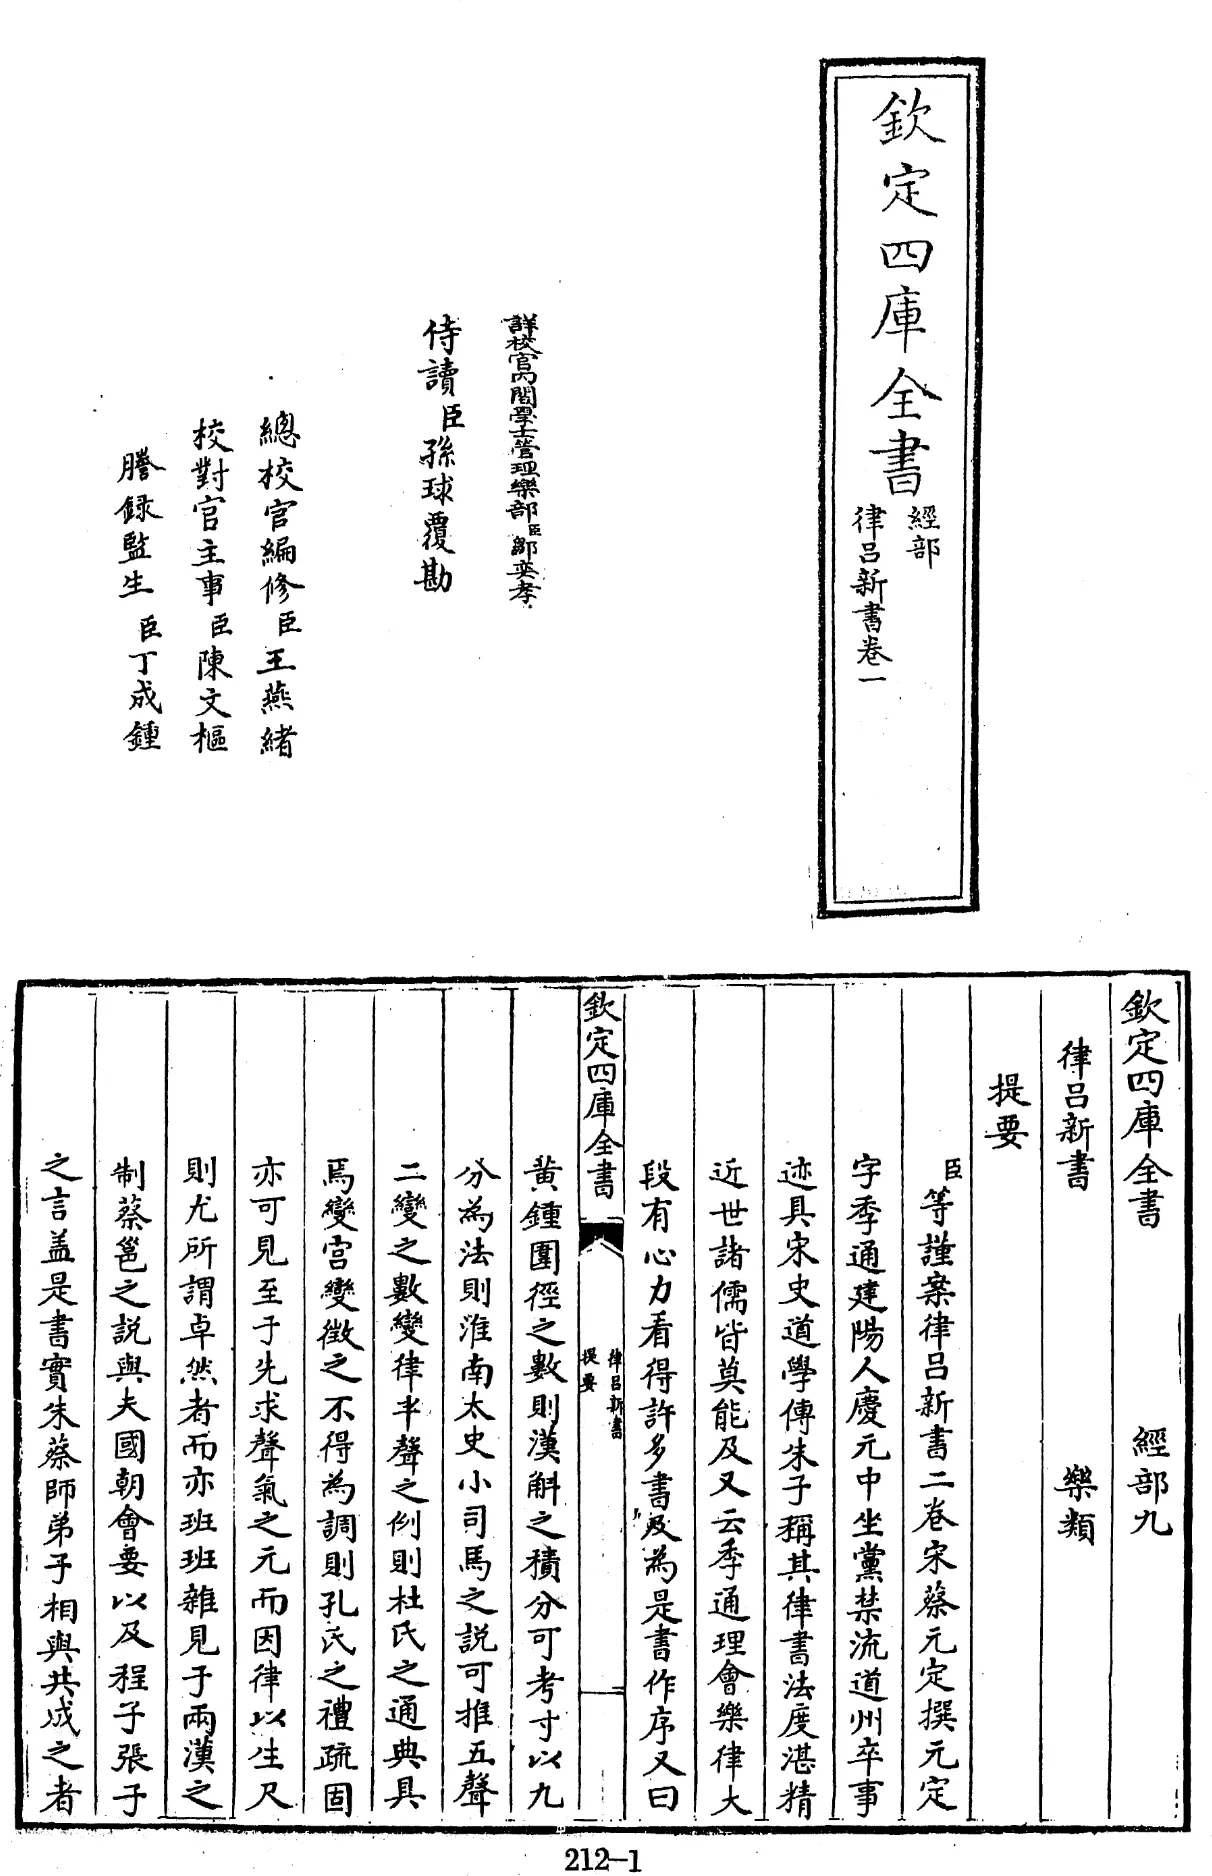 欽定四庫全書
經部
律呂新書卷一
詳校官內閣學士管理樂部臣鄒奕孝
侍讀臣孫球覆勘
總校官編修臣王燕緒
校對官主事臣陳文樞
謄錄監生臣丁成鍾
欽定四庫全書 經部九
律呂新書 樂類
提要
臣等謹案律呂新書二卷宋蔡元定撰元定
字季通建陽人慶元中坐黨禁流道州卒事
迹具宋史道學傳朱子稱其律書法度湛精
近世諸儒皆莫能及又云季通理會樂律大
段有心力看得許多書及為是書作序又曰
欽定四庫全書
律呂新書
提要
黃鍾圍徑之數則漢斛之積分可考寸以九
分為法則淮南太史小司馬之說可推五聲
二變之數變律半聲之例則杜氏之通典具
焉變宮變徵之不得為調則孔氏之禮疏固
亦可見至于先求聲氣之元而因律以生尺
則尤所謂卓然者而亦班班雜見于兩漢之
制蔡邕之說與夫國朝會要以及程子張子
之言蓋是書實朱蔡師弟子相與共成之者
212-1